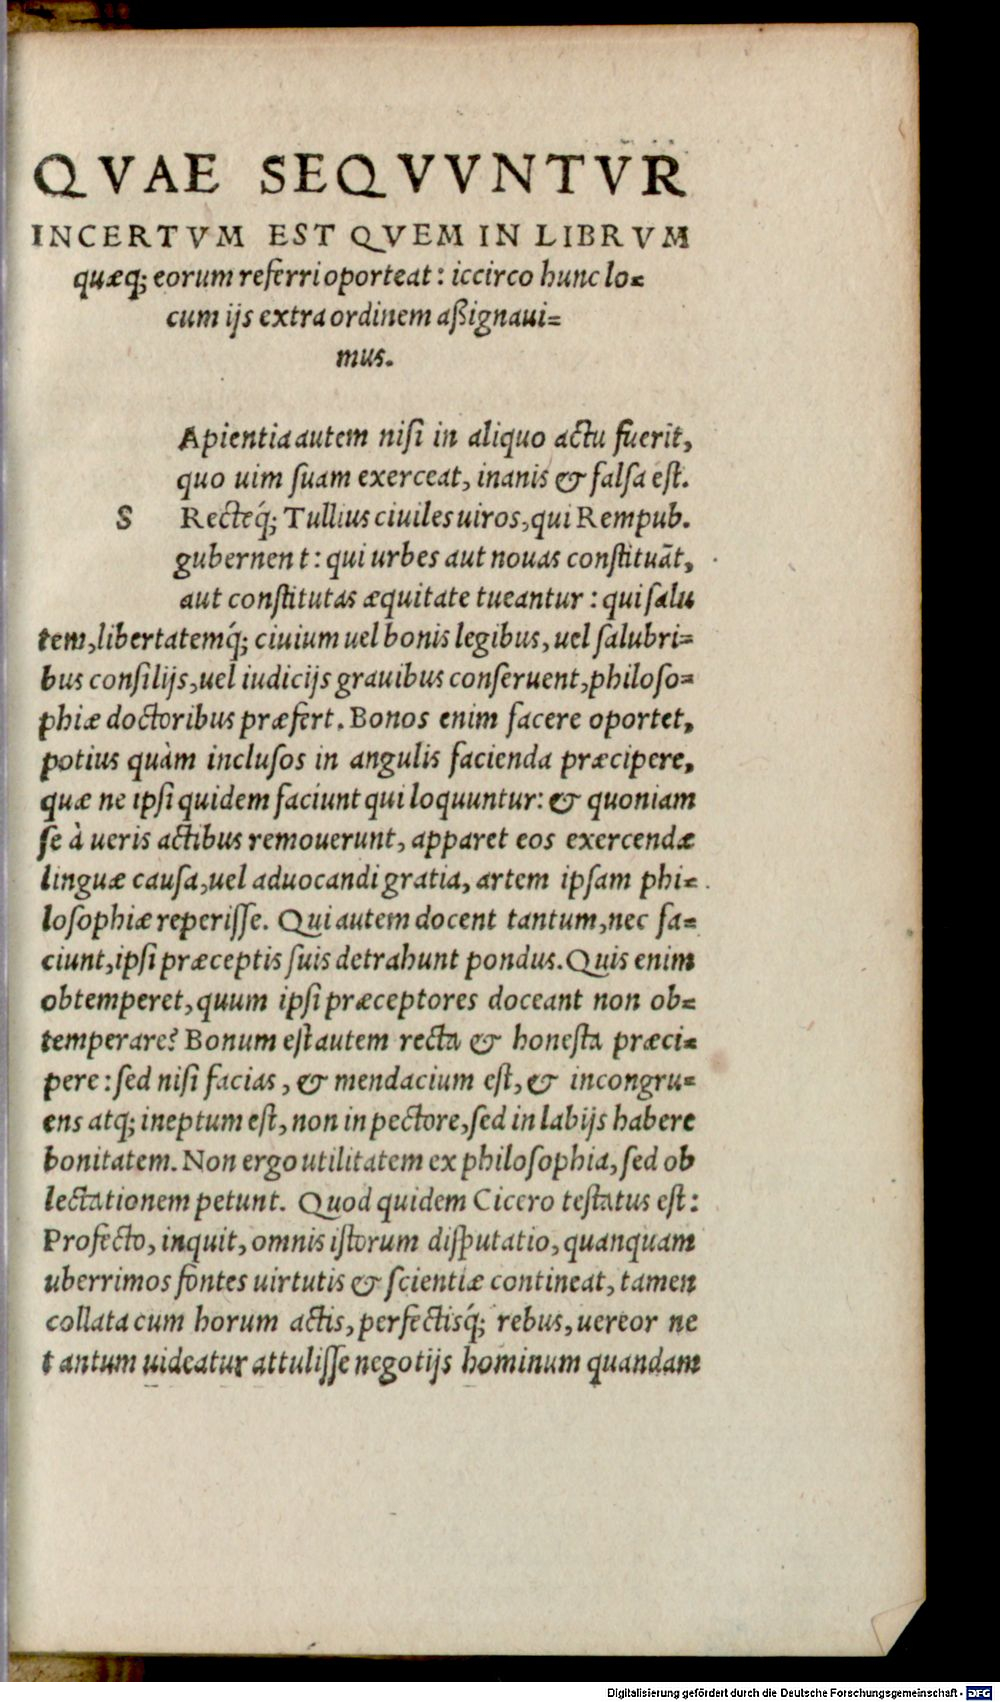 QVAE SEQVVNTVR
INCERTVM EST QVEM IN LIBRVM
quæq; eorum referri oporteat: iccirco hunc lo=
cum ijs extra ordinem aßignaui=
mus.
Apientia autem nisi in aliquo actu fuerit,
quo uim suam exerceat, inanis & falsa est.
S Recteq́; Tullius ciuiles uiros, qui Rempub.
gubernent: qui urbes aut nouas constituāt,
aut constitutas æquitate tueantur: qui salu
tem, libertatemq́; ciuium uel bonis legibus, uel salubri=
bus consilijs, uel iudicijs grauibus conseruent, philoso=
phiæ doctoribus præfert. Bonos enim facere oportet,
potius quàm inclusos in angulis facienda præcipere,
quæ ne ipsi quidem faciunt qui loquuntur: & quoniam
se à ueris actibus remouerunt, apparet eos exercendæ
linguæ causa, uel aduocandi gratia, artem ipsam phi=
losophiæ reperisse. Qui autem docent tantum, nec fa=
ciunt, ipsi præceptis suis detrahunt pondus. Quis enim
obtemperet, quum ipsi præceptores doceant non ob=
temperare? Bonum est autem recta & honesta præci=
pere: sed nisi facias, & mendacium est, & incongru=
ens atq; ineptum est, non in pectore, sed in labijs habere
bonitatem. Non ergo utilitatem ex philosophia, sed ob
lectationem petunt. Quod quidem Cicero testatus est:
Profecto, inquit, omnis istorum disputatio, quanquam
uberrimos fontes uirtutis & scientiæ contineat, tamen
collata cum horum actis, perfectisq́; rebus, uereor ne
tantum uideatur attulisse negotijs hominum quandam
Digitalisierung gefördert durch die Deutsche Forschungsgemeinschaft - DFG